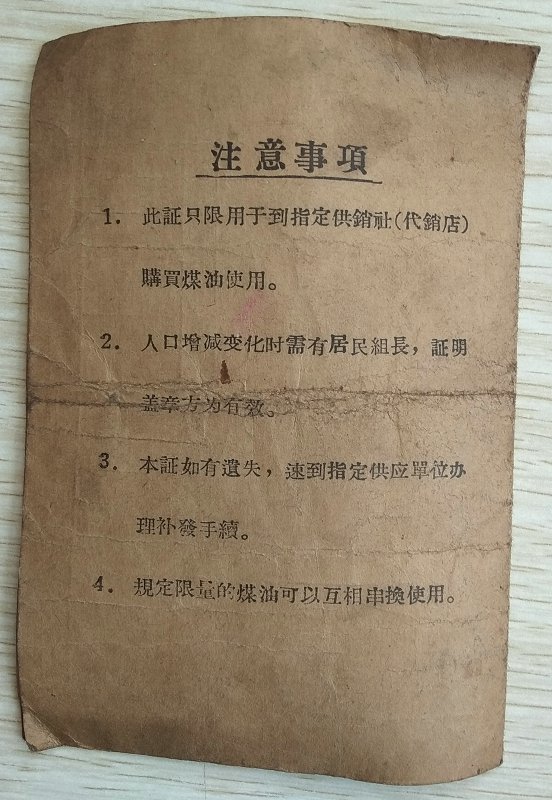 注意事項
1. 此証只限用于到指定供銷社(代銷店)
購買煤油使用。
2. 人口增减变化时需有居民組長，証明
盖章方为有效。
3. 本証如有遺失，速到指定供应單位办
理补發手續。
4. 規定限量的煤油可以互相串換使用。